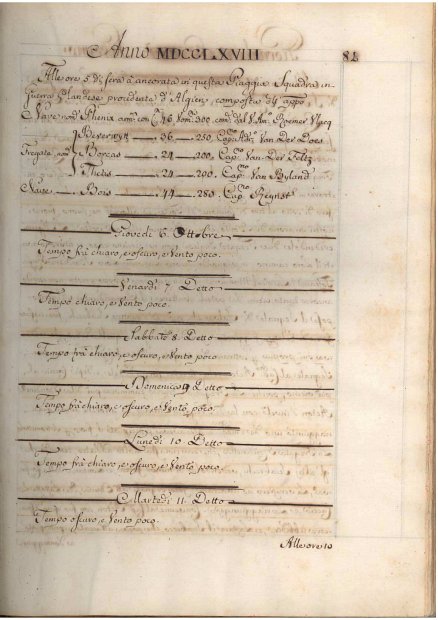 Anno MDCCLXVIII 82
Alle ore 5 di sera à ancorata in questa Piaggia Squadra in
guerra Olandese procidente d'Algieri, composta di 4 appo
Nave nom.ta Phenix arm. con C. 46 Uom. 300, com. dal V. Am. Roemer Vlacq
Beverwyk 36 250 Cap.no Van Der Does
Fregata nom. Boreas 24 200 Cap.no Van Der Feltz
Thetis 24 200 Cap.no Van Byland
Nave Bois 44 280 Cap.no Reynst
Giovedì 6 Ottobre
Tempo frà chiaro, e oscuro, e Vento poco.
Venardì 7 Detto
Tempo chiaro, e Vento poco.
Sabbato 8 Detto
Tempo frà chiaro, e oscuro, e Vento poco.
Domenica 9 Detto
Tempo frà chiaro, e oscuro, e Vento poco.
Lunedì 10 Detto
Tempo frà chiaro, e oscuro, e Vento poco.
Martedì 11 Detto
Tempo oscuro, e Vento poco.
Alle ore 10